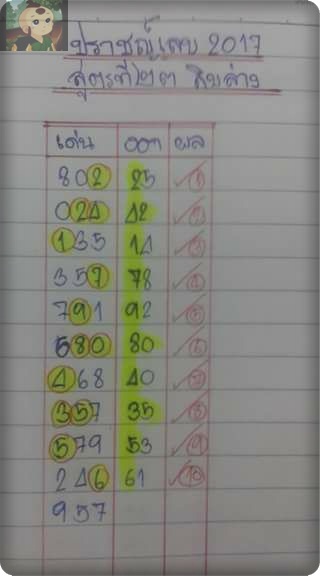 ปราชญ์เลข 2017
สูตรที่๒๓ สิบล่าง
เด่น ออก ผล
802 25 ✓1
024 42 ✓2
135 14 ✓3
357 78 ✓4
791 92 ✓5
580 80 ✓6
468 40 ✓7
357 35 ✓8
579 53 ✓9
246 61 ✓10
957